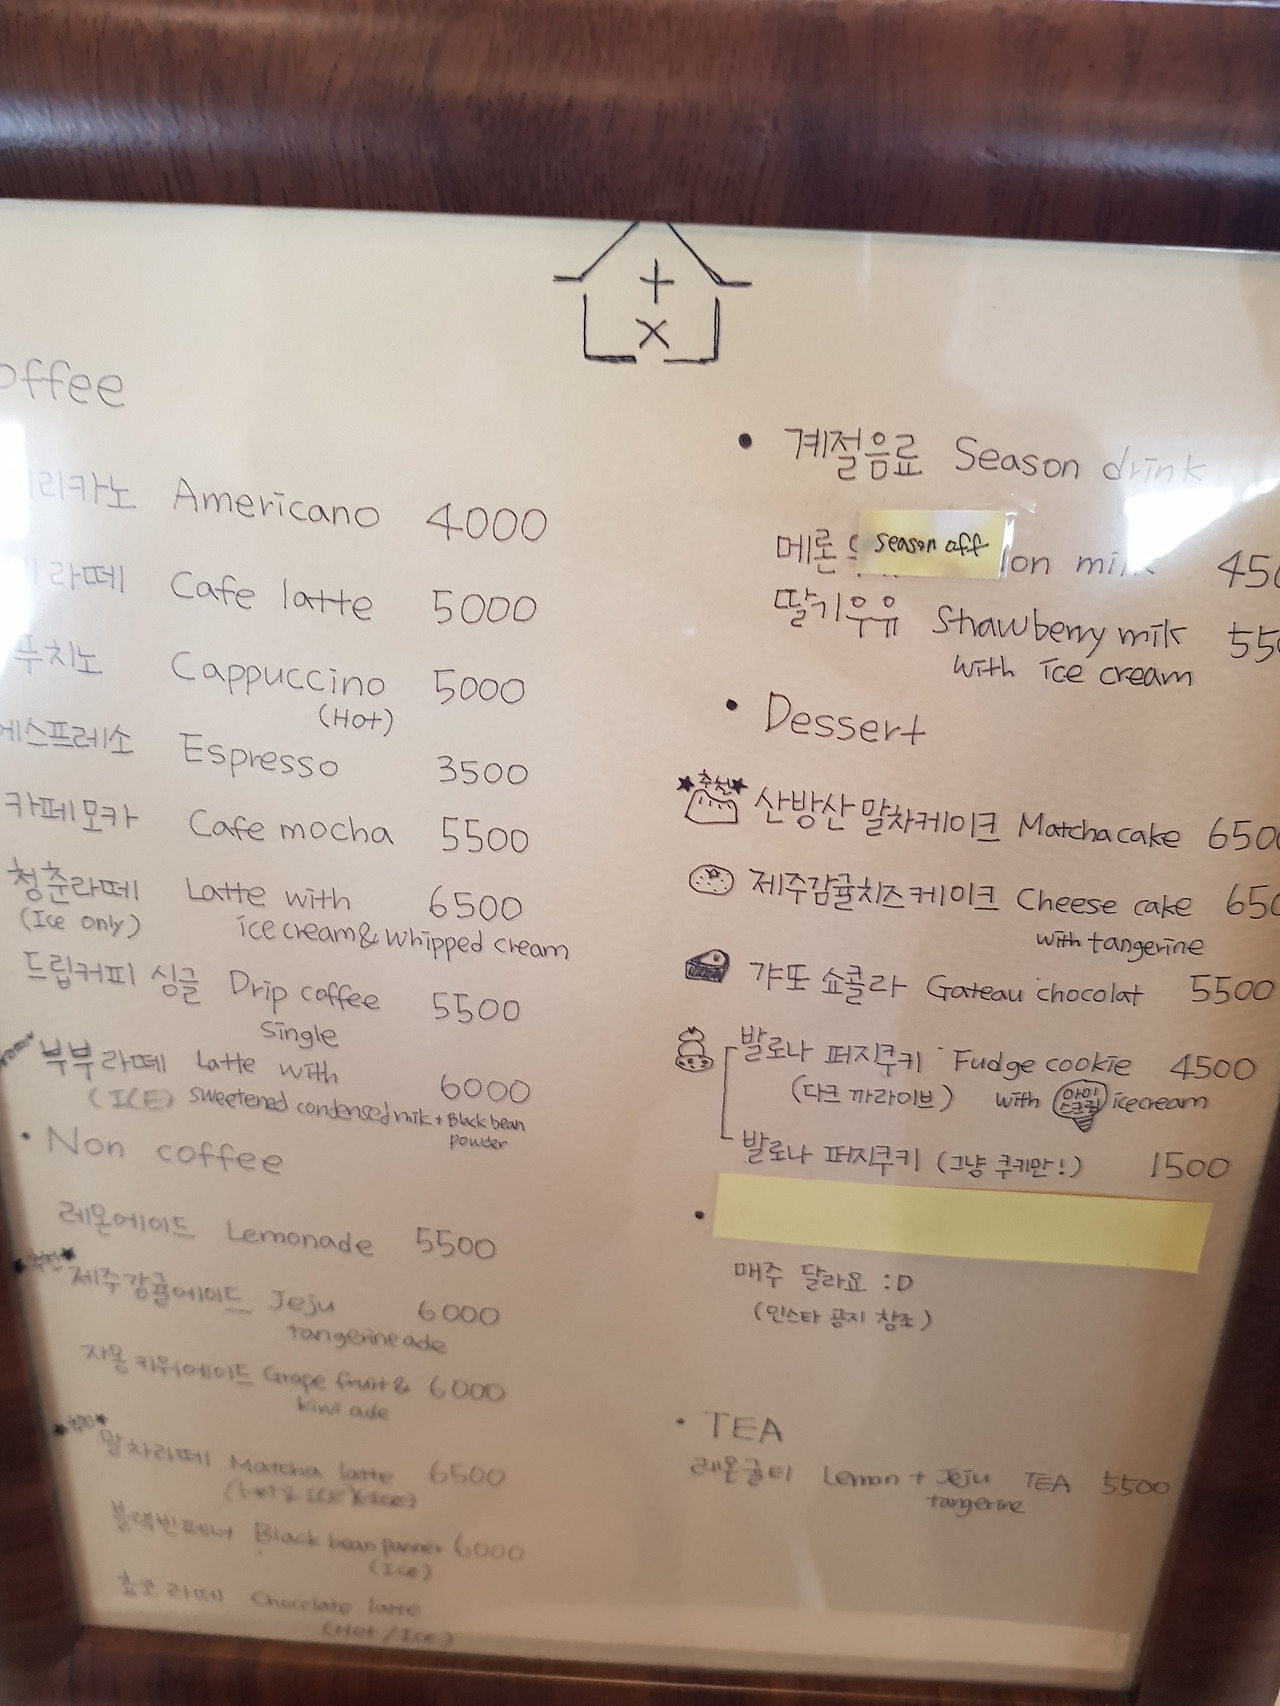 +
×
offee
리카노 Americano 4000
라떼 Cafe latte 5000
푸치노 Cappuccino 5000
(Hot)
에스프레소 Espresso 3500
카페모카 Cafe mocha 5500
청춘라떼 Latte with 6500
(Ice only) ice cream & whipped cream
드립커피 싱글 Drip coffee 5500
Single
부부라떼 Latte with 6000
(ICE) sweetened condensed milk + Black bean
powder
• Non coffee
레몬에이드 Lemonade 5500
제주감귤에이드 Jeju 6000
tangerine ade
자몽키위에이드 Grape fruit & 6000
kiwi ade
말차라떼 Matcha latte 6500
블랙빈페너 Black bean panner 6000
(Ice)
쵸코라떼 Chocolate latte
(Hot / Ice)
• 계절음료 Season drink
메론 season off lon milk 450
딸기우유 Strawberry milk 550
with ice cream
• Dessert
★추천★
산방산 말차케이크 Matcha cake 6500
제주감귤치즈케이크 Cheese cake 650
with tangerine
갸또 쇼콜라 Gateau chocolat 5500
발로나 퍼지쿠키 Fudge cookie 4500
(다크 까라이브) with 아이스크림 icecream
발로나 퍼지쿠키 (그냥 쿠키만!) 1500
•
매주 달라요 :D
(인스타 공지 참조)
• TEA
레몬귤티 Lemon + Jeju TEA 5500
tangerine